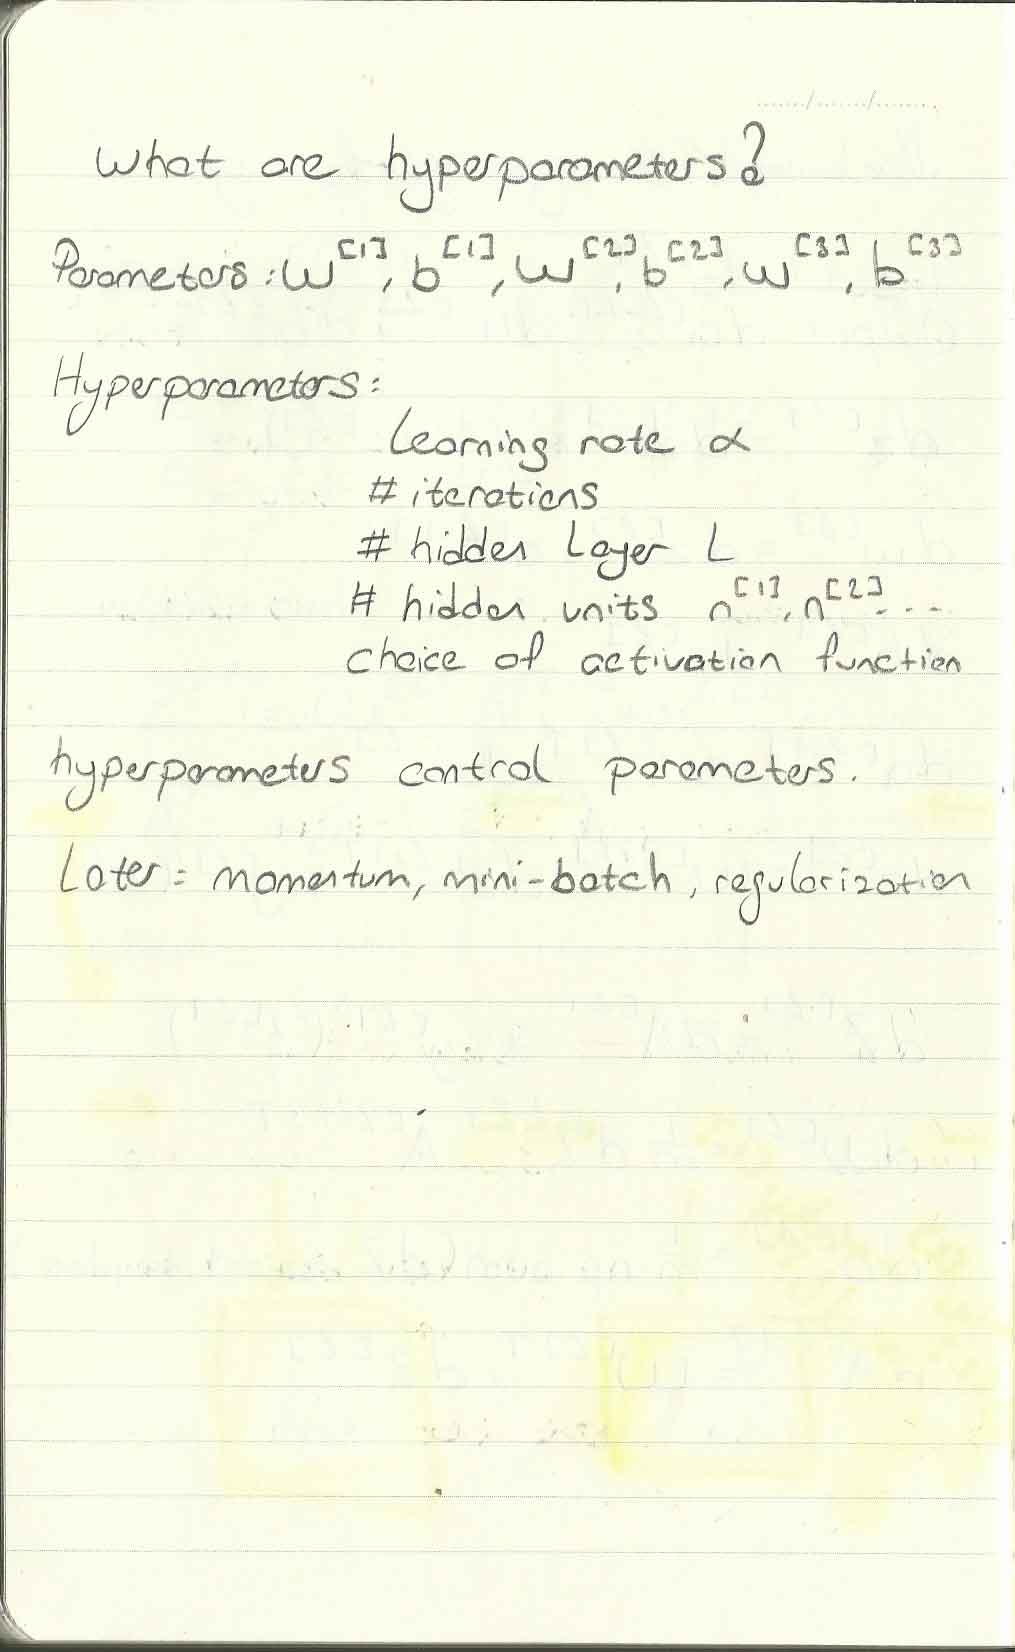 What are hyperparameters?
Parameters: W^[1], b^[1], W^[2], b^[2], W^[3], b^[3]
Hyperparameters:
Learning rate α
# iterations
# hidden Layer L
# hidden units n^[1], n^[2]...
choice of activation function
hyperparameters control parameters.
Later: momentum, mini-batch, regularization